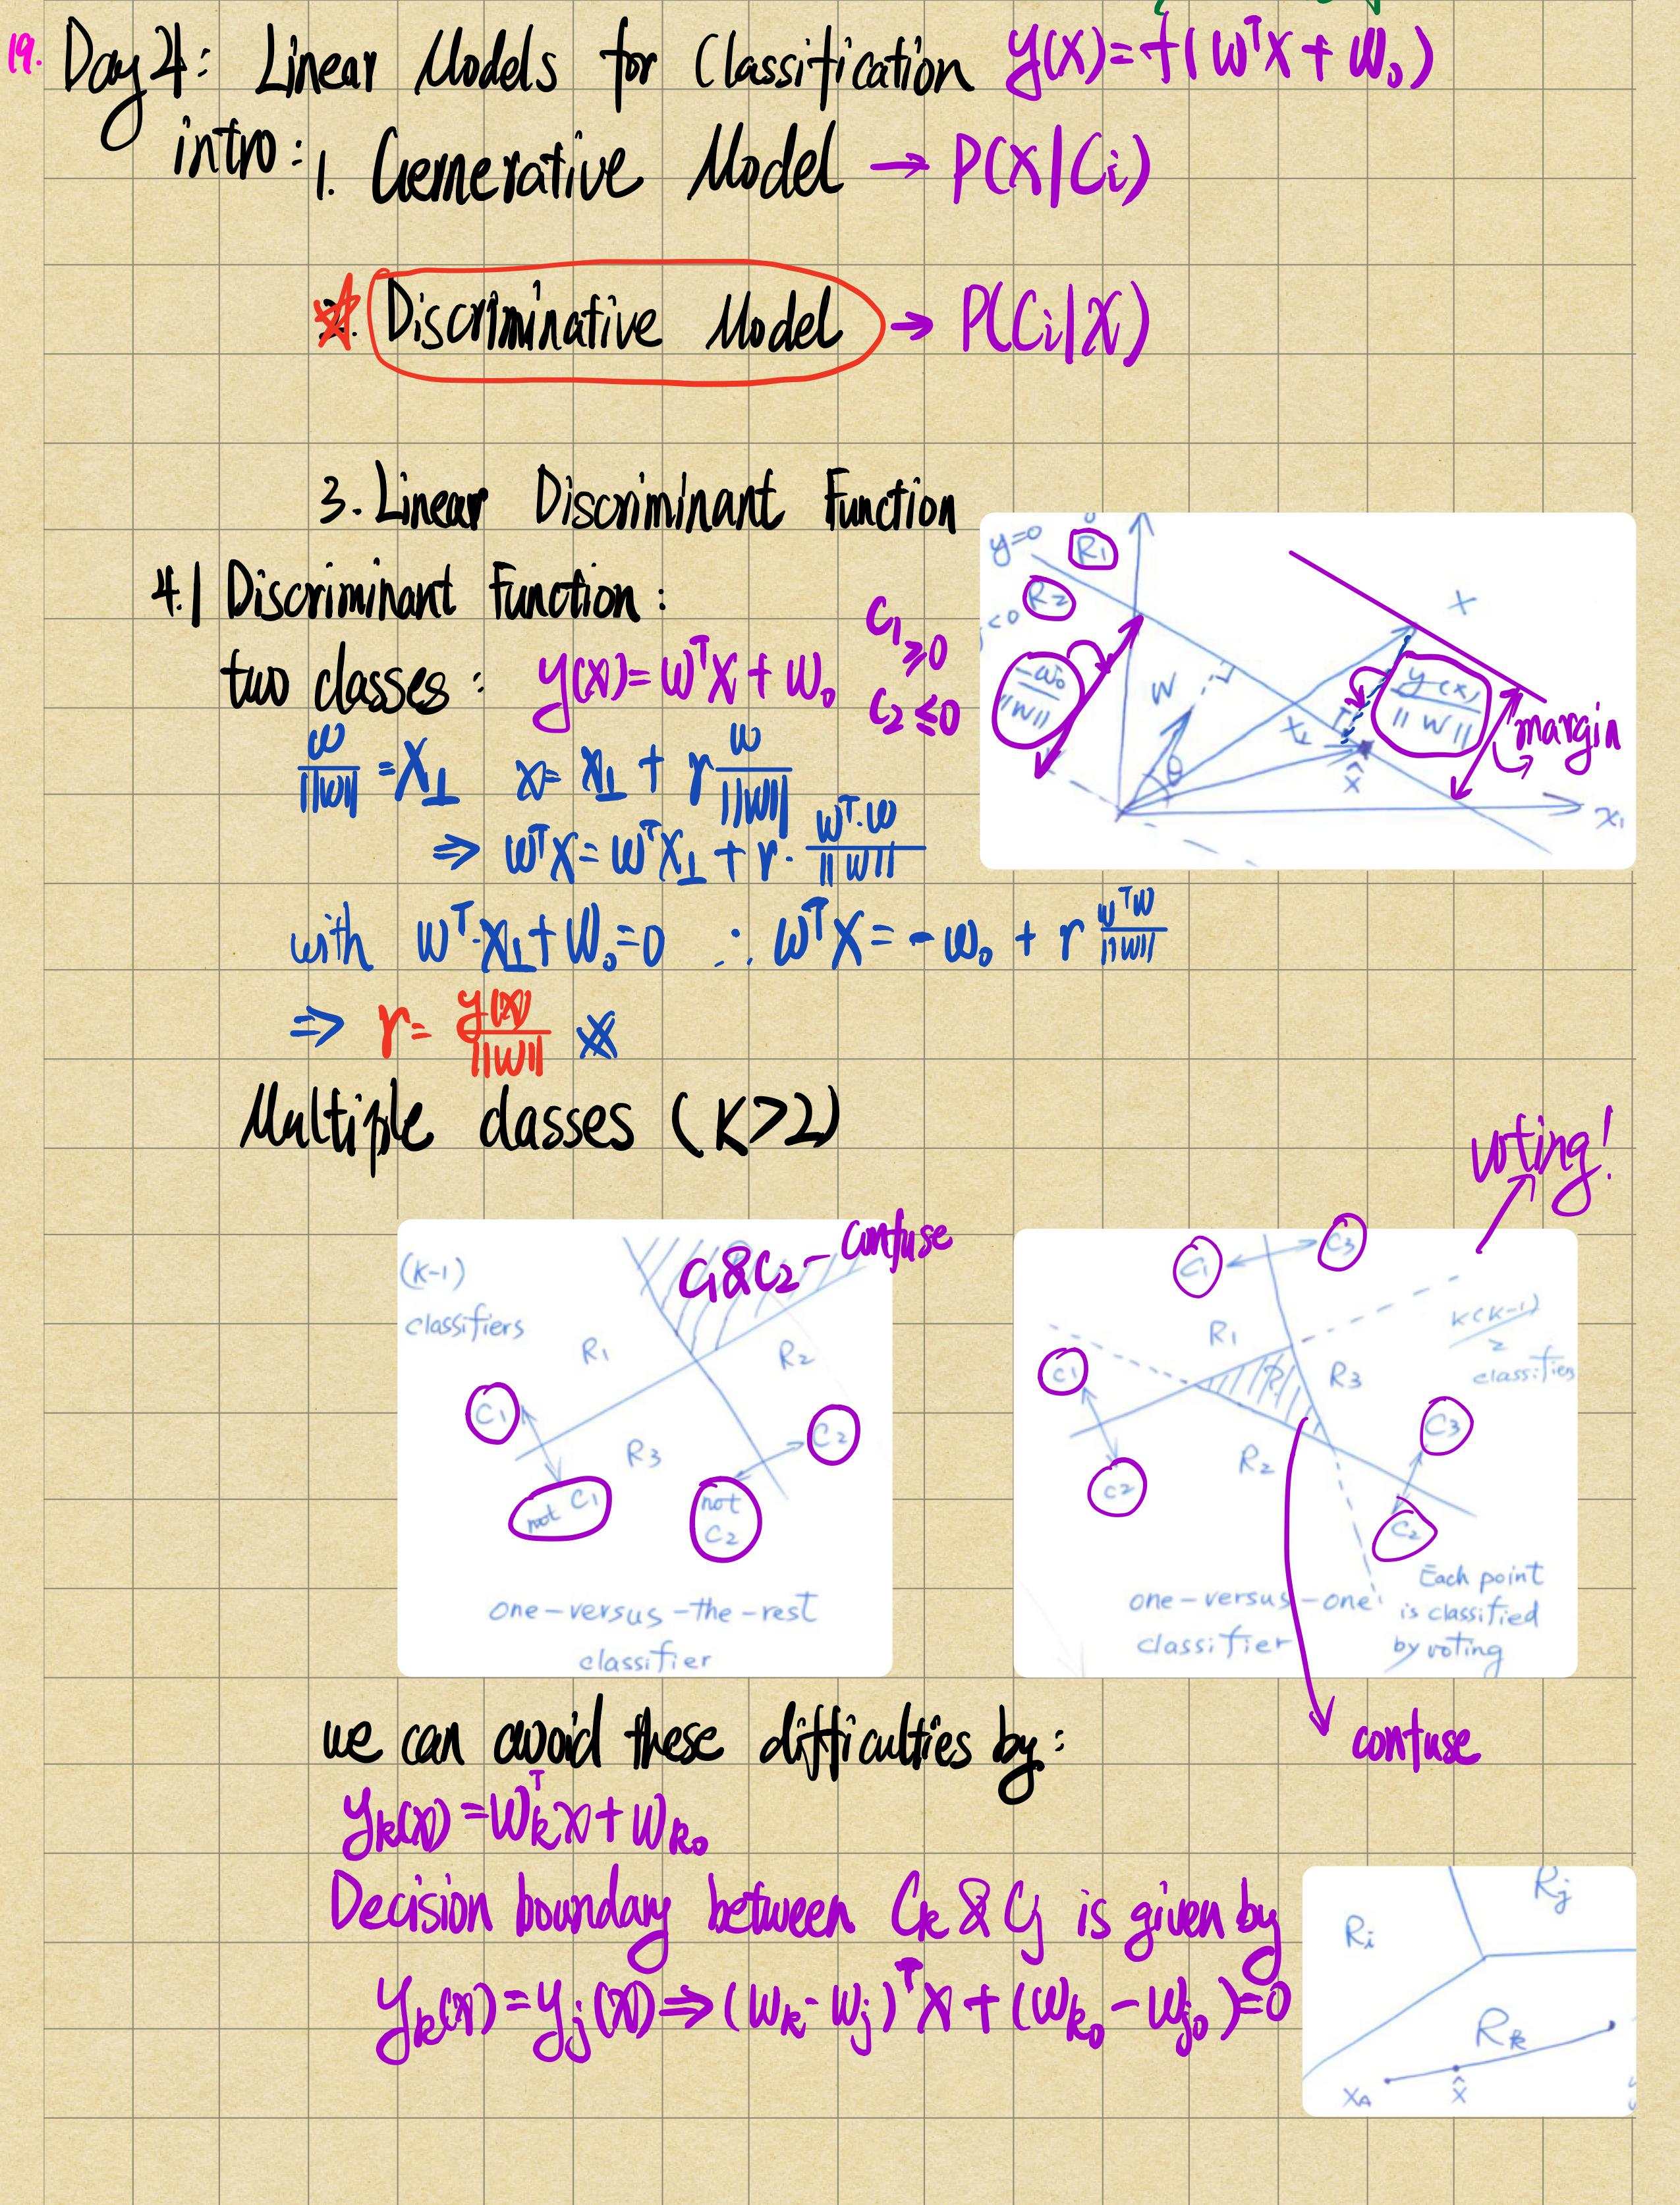 19. Day 4: Linear Models for Classification y(x)=f(wᵀx + w₀)
intro: 1. Gernerative Model → P(x|Ci)
2. Discriminative Model → P(Ci|x)
3. Linear Discriminant Function
4.1 Discriminant Function:
two classes: y(x)=wᵀx + w₀
C₁ ≥0
C₂ ≤0
w/||w|| = x⊥ x= x⊥ + r w/||w||
⇒ wᵀx = wᵀx⊥ + r· wᵀ·w/||w||
with wᵀ·x⊥+w₀=0 ∴ wᵀx = -w₀ + r wᵀw/||w||
⇒ r= y(x)/||w||
y=0
R₁
R₂
<0
-w₀/||w||
w
x
x⊥
r
θ
x̂
y(x)/||w||
margin
x₁
Multiple classes (K>2)
voting!
(K-1)
classifiers
C₁&C₂ - confuse
R₁
R₂
R₃
C₁
not C₁
C₂
not
C₂
one-versus-the-rest
classifier
C₁
C₃
K(K-1)/2
classifiers
R₁
R₃
R₂
?
C₁
C₂
C₃
C₂
one-versus-one
classifier
Each point
is classified
by voting
confuse
we can avoid these difficulties by:
yₖ(x) = wₖᵀx + wₖ₀
Decision boundary between Cₖ & Cⱼ is given by
yₖ(x) = yⱼ(x) ⇒ (wₖ - wⱼ)ᵀx + (wₖ₀ - wⱼ₀)=0
Ri
Rj
Rk
xA
x̂